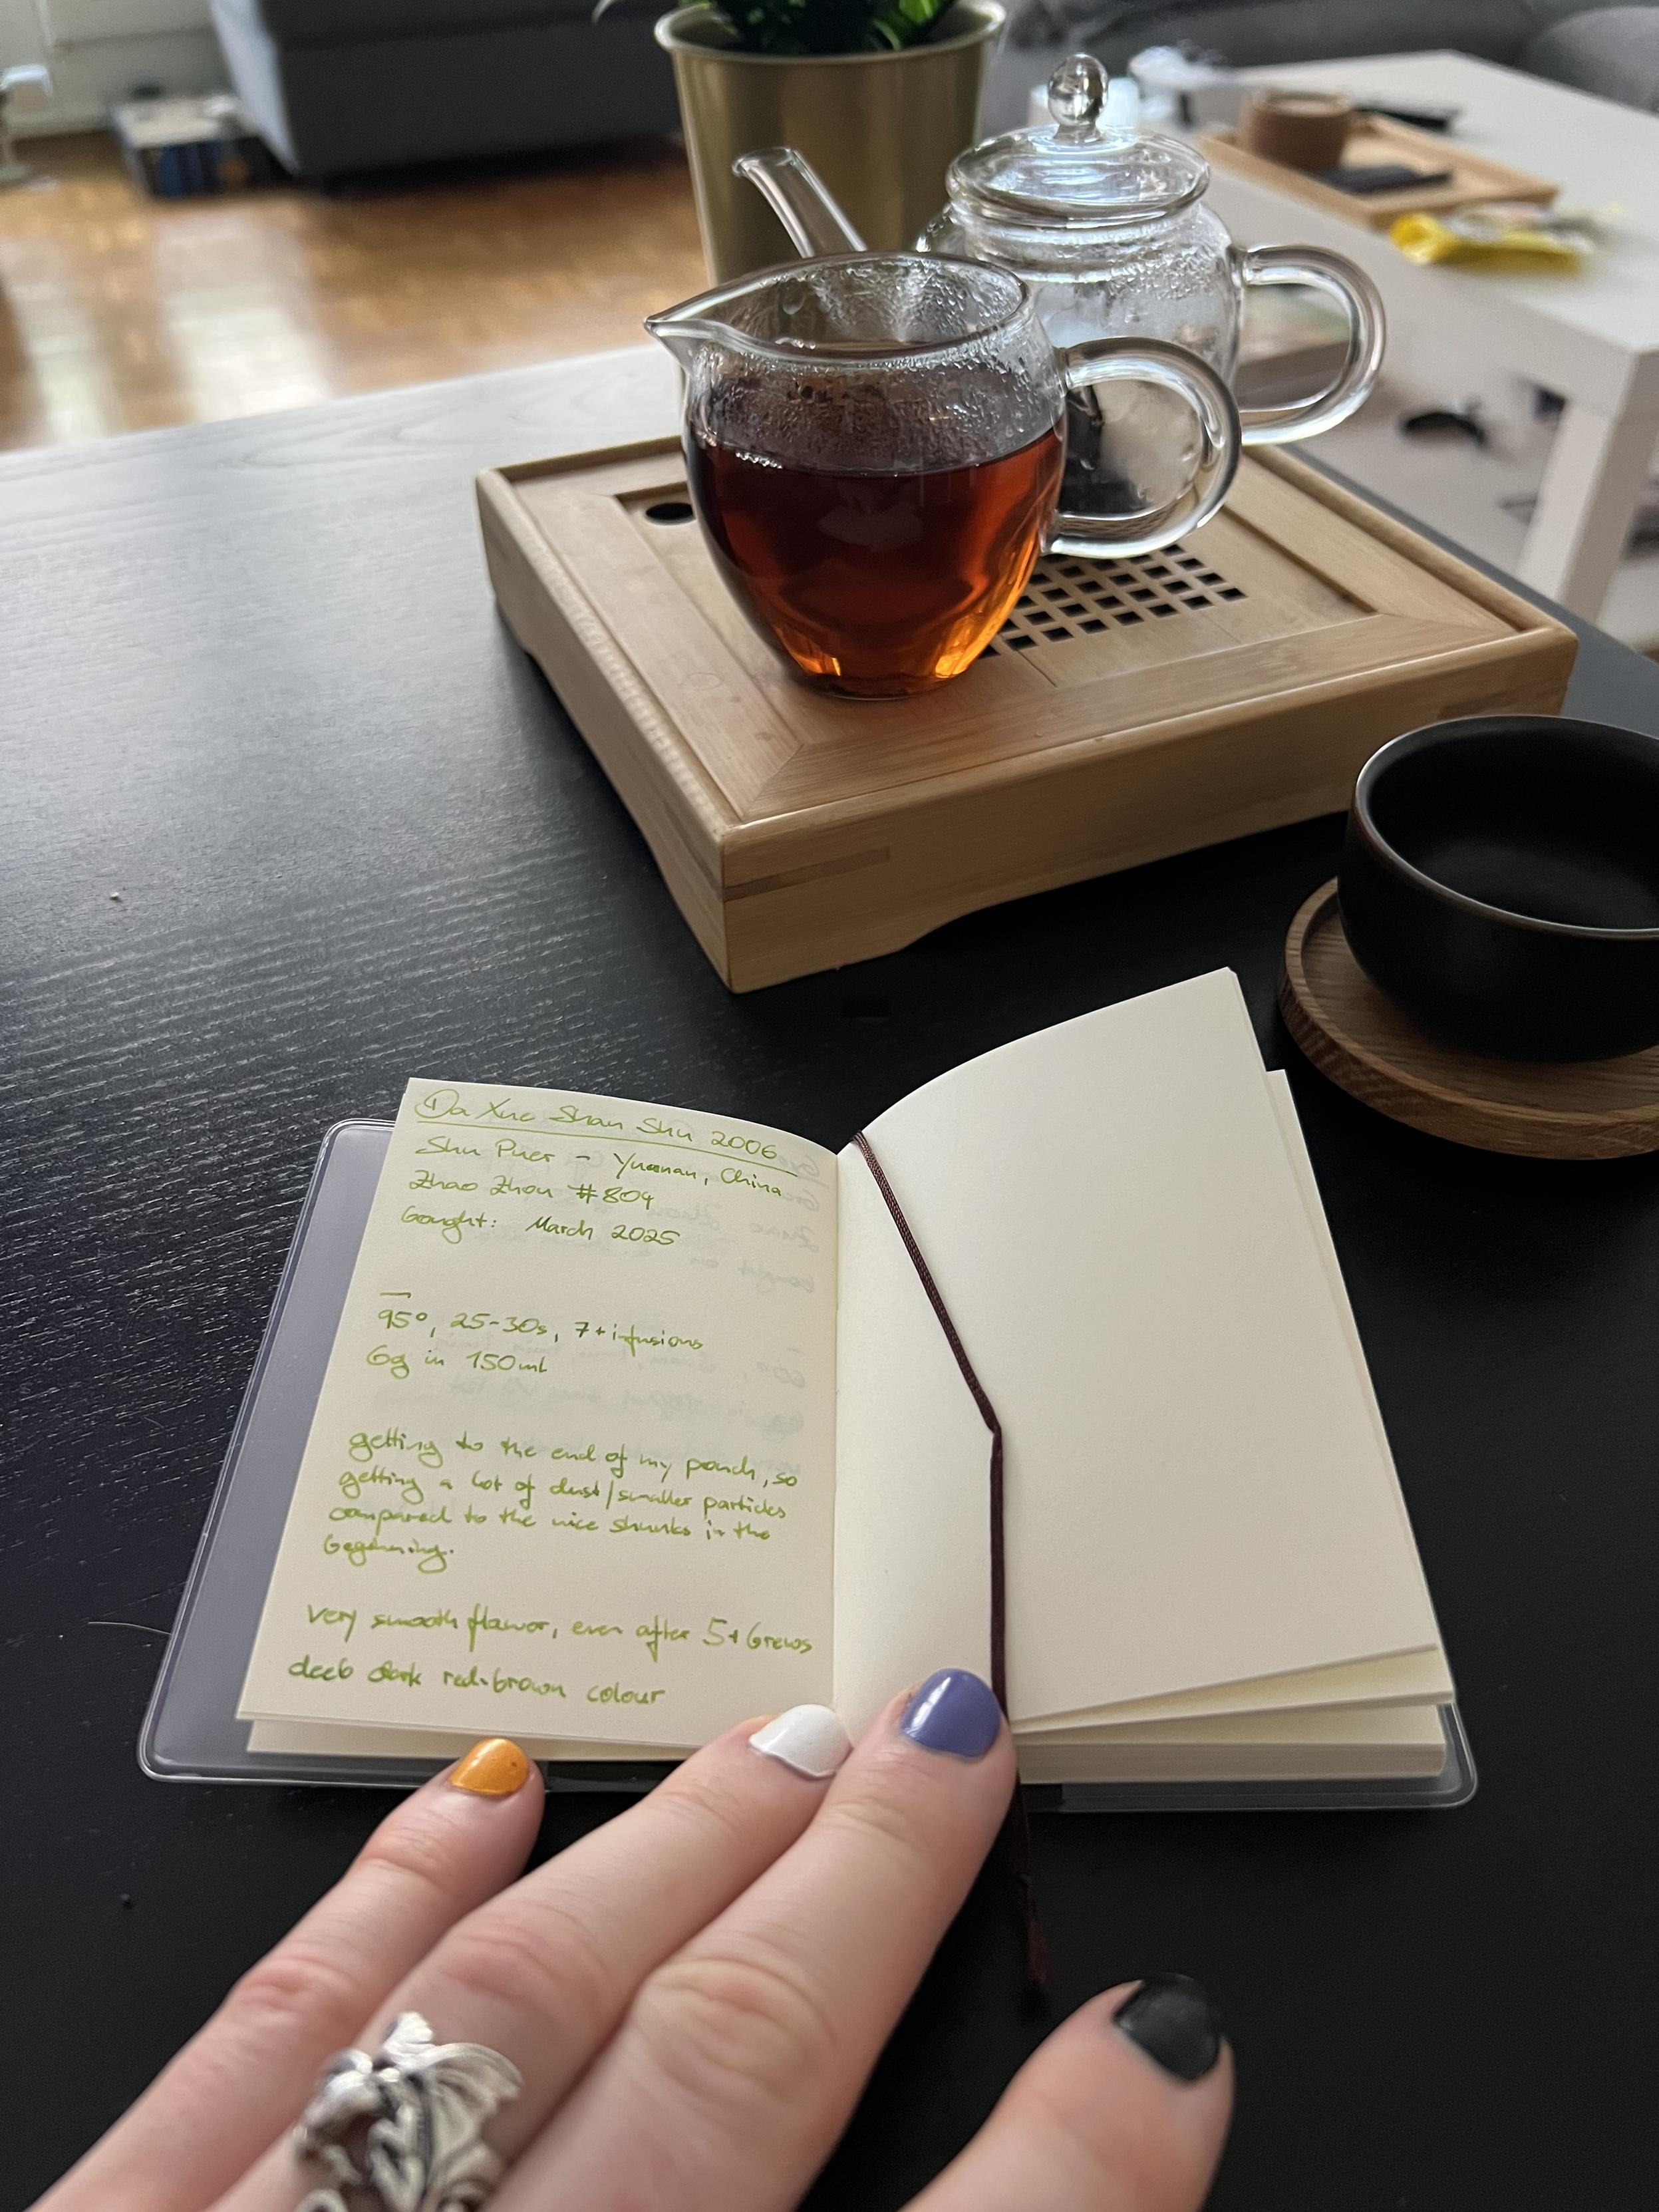 Da Xue Shan Shu 2006
Shu Puer - Yunnan, China
Zhao Zhou #809
bought: March 2025
95°, 25-30s, 7+ infusions
6g in 150ml
getting to the end of my pouch, so
getting a lot of dust/smaller particles
compared to the nice shunks in the
beginning.
very smooth flavor, even after 5+ brews
deeb dark red-brown colour